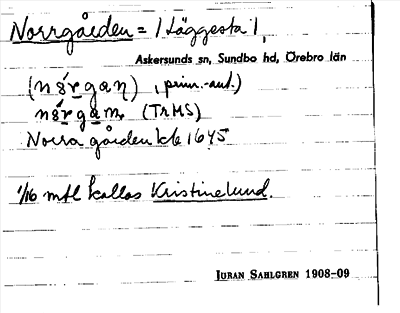 Norrgården = / Läggesta 1,
Askersunds sn, Sundbo hd, Örebro län
(nórgan), prim.-ant.)
nórgam, (TrMS)
Norra gården kb 1645
1/16 mtl kallas Kristinelund.
JÖRAN SAHLGREN 1908-09